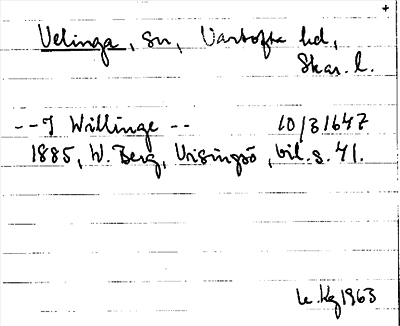 +
Velinga, sn, Vartofta hd,
Skar. l.
--I Willinge --    10/3 1647
1885, W. Berg, Visingsö, bil. s. 41.
1963